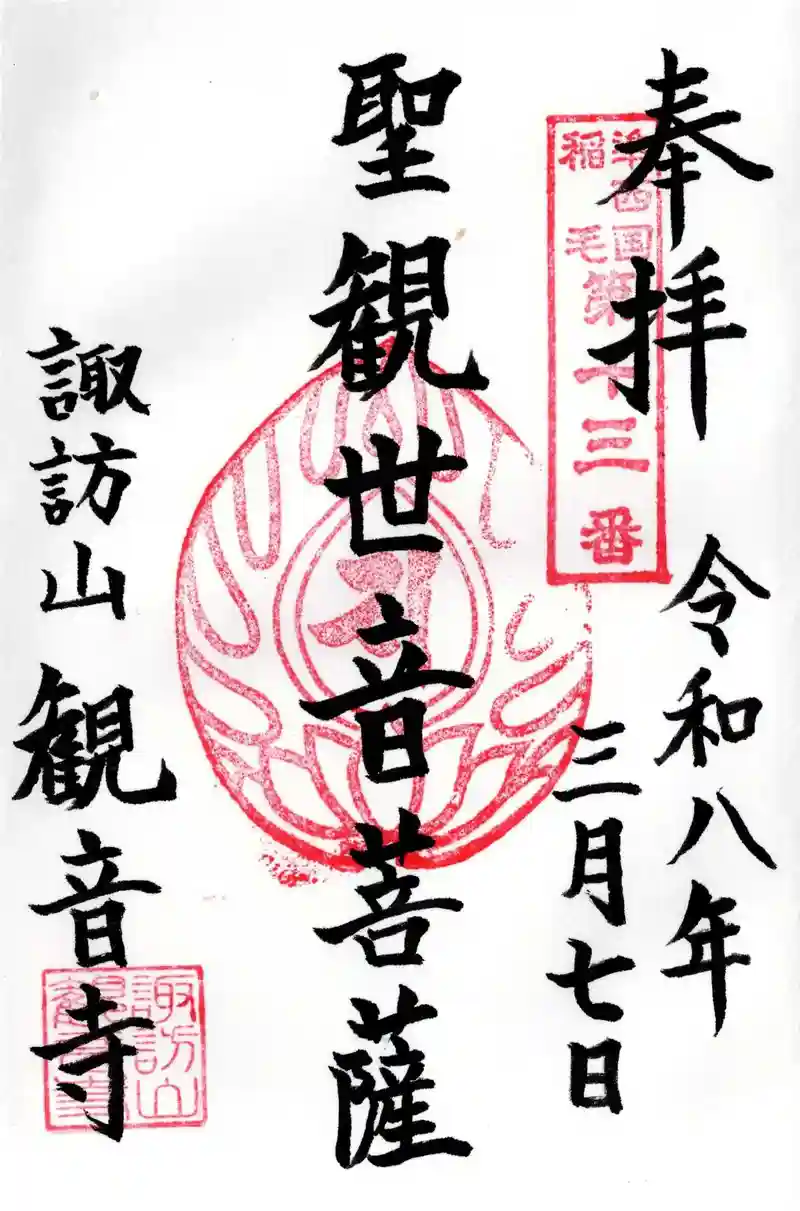 奉拝
準西国
稲毛
第十三番
令和八年
三月七日
聖観世音菩薩
諏訪山 観音寺
諏訪山
観音寺